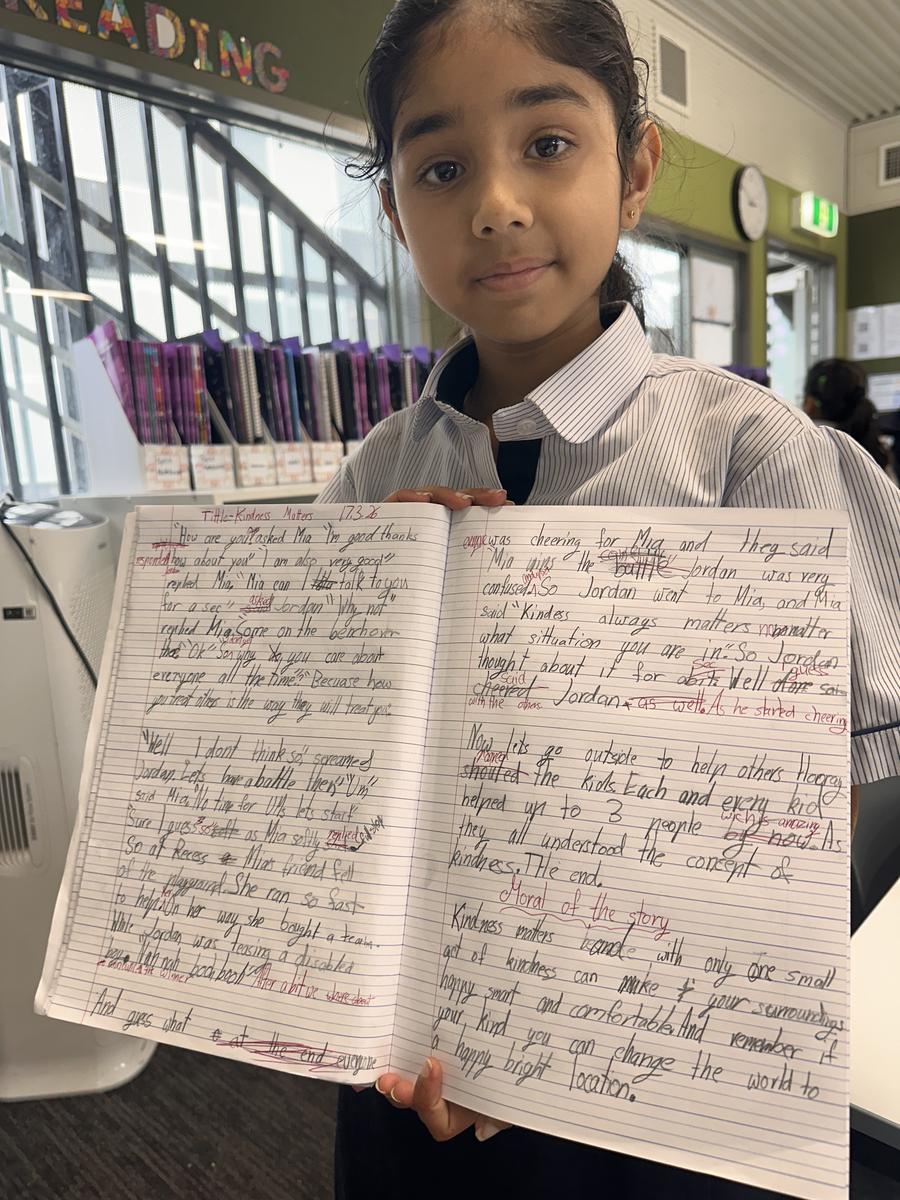 READING
Tittle-Kindness Matters 17.3.26
"How are you" asked Mia "I'm good thanks
how about you" "I am also very good"
replied Mia, "Mia can I talk to you
for a sec" asked Jordan "Why not"
replied Mia, Some on the bench over
"Ok" So why do you care about
everyone all the time?" Becuase how
you treat others is the way they will treat you.
"Well I dont think so", screamed
Jordan. Lets have a battle then" "Um"
said Mia, "No time for UMs lets start"
Sure I guess" as Mia softly replied
So at Recess Mias friend fell
of the playground. She ran so fast
to help On her way she bought a
While Jordan was teasing a disabled
boy. boohooh" After a bit we
And guess what at the end everyone
was cheering for Mia and they said
"Mia wins the battle Jordan was very
confused. So Jordan went to Mia, and Mia
said "Kindess always matters matter
what situation you are in." So Jordan
thought about it for a sec Well guess
cheered said Jordan as well. As he started cheering
with the others
Now lets go outside to help others Hooray
shouted the kids. Each and every kid
helped up to 3 people by now. wich is amazing As
they all understood the concept of
kindness. THe end.
Moral of the story
Kindness matters with only one small
act of kindness can make your surroundings
happy smart and comfortable. And remember if
your, kind you can change the world to
a happy bright location.